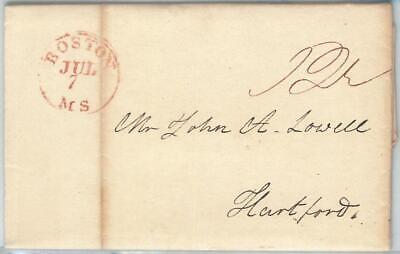 BOSTON
JUL
7
MS
Mr John A. Lowell
Hartford.